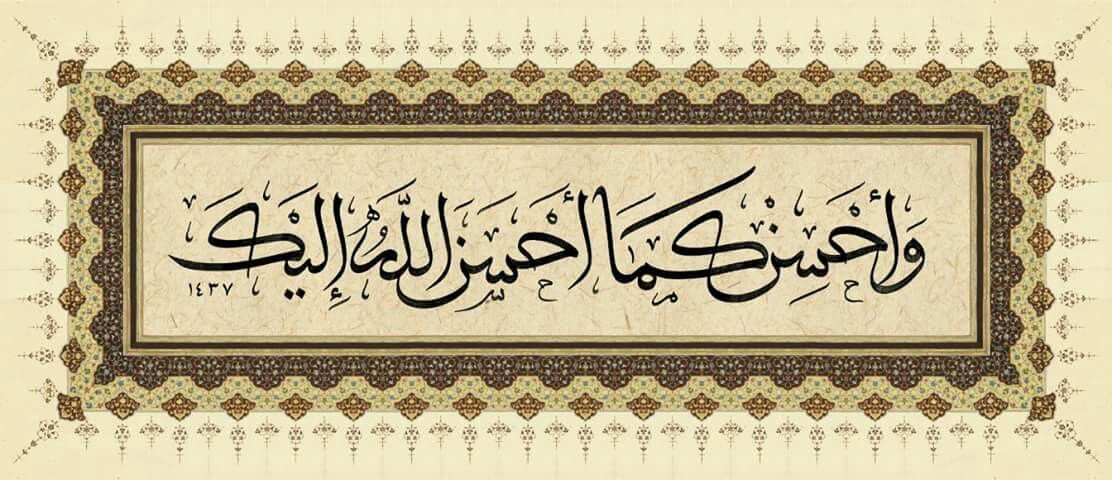 وَأَحْسِنْ كَمَا أَحْسَنَ اللَّهُ إِلَيْكَ
١٤٣٧